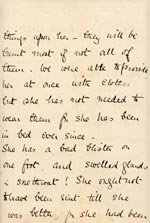 things upon her – they will be
burnt most if not all of
them. We were able to provide
her at once with cloths
but she has not needed to
wear them for she has been
in bed ever since.
She has a bad blister on
one foot, and swelled glands
& sorethroat! She ought not
to have been sent till she
was better for she had been